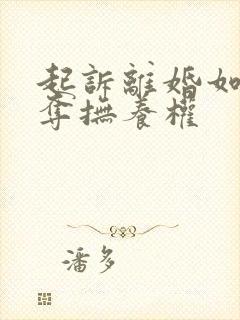 起訴離婚如
奪撫養權
潘多